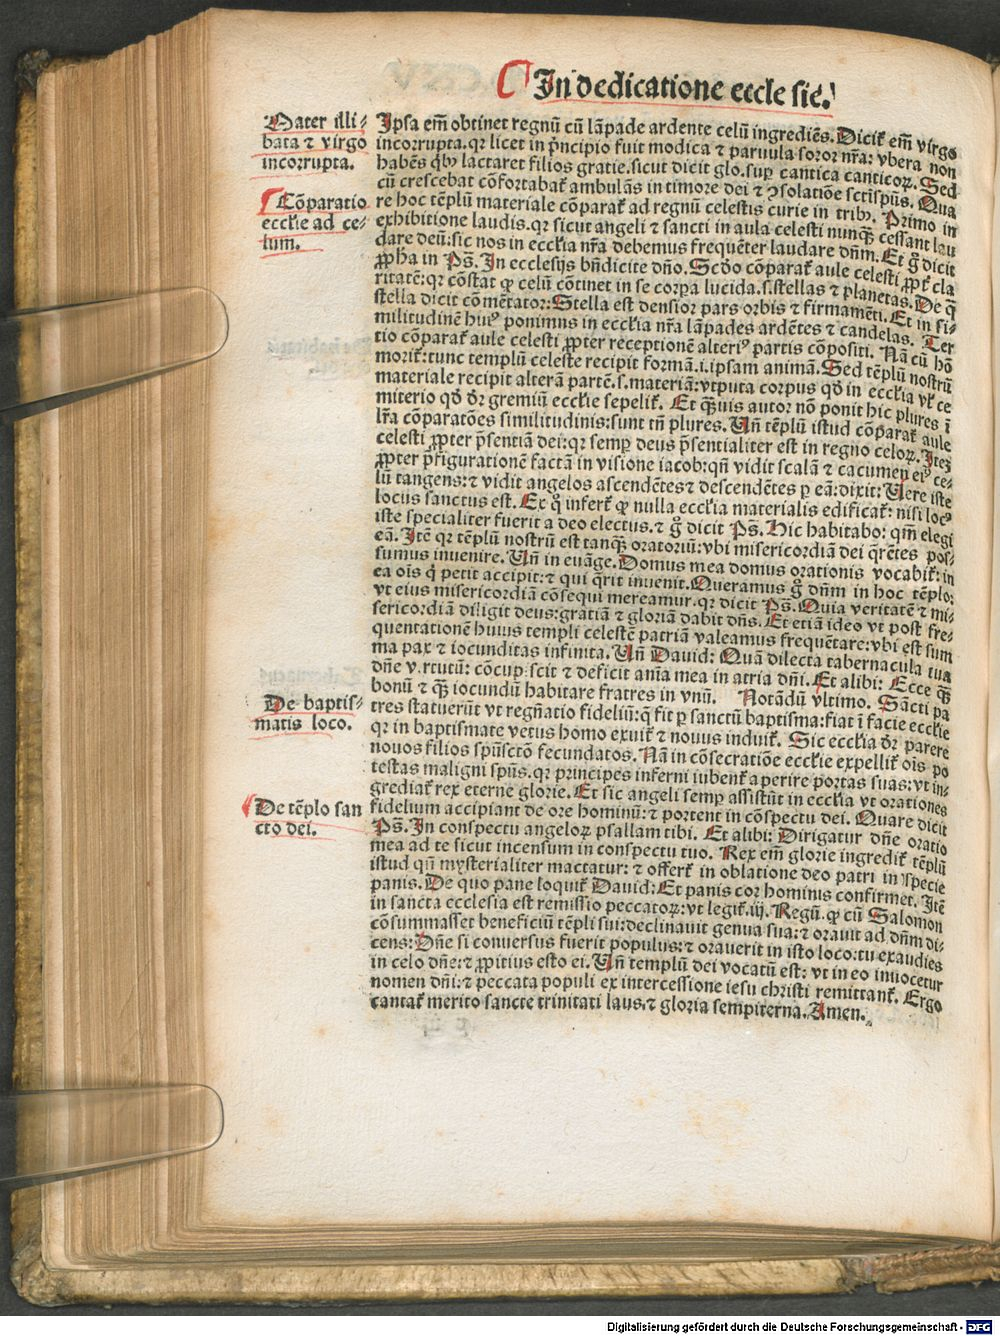 In dedicatione ecclesie.
Mater illi-
bata ⁊ virgo
incorrupta.
Cōparatio
ecclīe ad ce-
lum.
De baptis-
matis loco.
De tēplo san
cto dei.
Ipsa em̄ obtinet regnū cū lāpade ardente celū ingrediēs. Dicit̄ em̄ virgo
incorrupta. qꝛ licet in pͥncipio fuit modica ⁊ paruula soror nr̄a: vbera non
habēs qͥbꝰ lactaret filios gratie. sicut dicit glo. suꝑ cantica canticoꝝ. Sed
cū crescebat cōfortabat̄ ambulās in timore dei ⁊ ꝯsolatiōe sctīspūs. Qua
re hoc tēplū materiale cōparat̄ ad regnū celestis curie in tribꝰ. Primo in
exhibitione laudis. qꝛ sicut angeli ⁊ sancti in aula celesti nunqȝ cessant lau
dare deū: sic nos in ecclīa nr̄a debemus frequēter laudare dn̄m. Et gͦ dicit
ꝓpha in Ps̄. In ecclesijs bn̄dicite dn̄o. Scd̄o cōparat̄ aule celesti ꝓpt̄ cla
ritatē: qꝛ cōstat ꝙ celū cōtinet in se corpa lucida. s. stellas ⁊ planetas. De qͣ
stella dicit cōmētator: Stella est densior pars orbis ⁊ firmamēti. Et in si-
militudinē huiꝰ ponimus in ecclīa nr̄a lāpades ardētes ⁊ candelas. Ter
tio cōparat̄ aule celesti ꝓpter receptionē alteriꝰ partis cōpositi. Nā cū hō
morit̄: tunc templū celeste recipit formā. i. ipsam animā. Sed tēplū nostrū
materiale recipit alterā partē. s. materiā: vtputa corpus qd̄ in ecclīa vl̄ ce
miterio qd̄ dr̄ gremiū ecclīe sepelit̄. Et qȝuis autor nō ponit hic plures ī
lr̄a cōparatōes similitudinis: sunt tn̄ plures. Un̄ tēplū istud cōparat̄ aule
celesti ꝓpter p̄sentiā dei: qꝛ semꝑ deus p̄sentialiter est in regno celoꝝ. Iteȝ
ꝓpter p̄figurationē factā in visione iacob: qn̄ vidit scalā ⁊ cacumen eiꝰ ce-
lū tangens: ⁊ vidit angelos ascendētes ⁊ descendētes ꝑ eā: dixit: Uere iste
locus sanctus est. Ex qͦ infert̄ ꝙ nulla ecclīa materialis edificat̄: nisi locꝰ
iste specialiter fuerit a deo electus. ⁊ gͦ dicit Ps̄. Hic habitabo: qm̄ elegi
eā. Itē qꝛ tēplū nostrū est tanqȝ oratoriū: vbi misericordiā dei qͣrētes pos-
sumus inuenire. Un̄ in euāge. Domus mea domus orationis vocabit̄: in
ea ois qͥ petit accipit: ⁊ qui qͣrit inuenit. Queramus gͦ dn̄m in hoc tēplo:
vt eius misericordiā cōsequi mereamur. qꝛ dicit Ps̄. Quia veritatē ⁊ mi-
sericordiā diligit deus: gratiā ⁊ gloriā dabit dn̄s. Et etiā ideo vt post fre-
quentationē huius templi celestē patriā valeamus frequētare: vbi est sum
ma pax ⁊ iocunditas infinita. Un̄ Dauid: Quā dilecta tabernacula tua
dn̄e v.rtutū: cōcup.scit ⁊ deficit anīa mea in atria dn̄i. Et alibi: Ecce qȝ
bonū ⁊ qȝ iocundū habitare fratres in vnū. Notādū vltimo. Sācti pa
tres statuerūt vt regn̄atio fideliū: q̄ fit ꝑ sanctū baptisma: fiat ī facie ecclīe
qꝛ in baptismate vetus homo exuit̄ ⁊ nouus induit̄. Sic ecclīa dr̄ parere
nouos filios spūsctō fecundatos. Nā in cōsecratiōe ecclīe expellit̄ ois po
testas maligni spūs. qꝛ principes inferni iubent̄ aperire portas suas: vt in-
grediat̄ rex eterne glorie. Et sic angeli semꝑ assistūt in ecclīa vt orationes
fidelium accipiant de ore hominū: ⁊ portent in cōspectu dei. Quare dicit
Ps̄. In conspectu angeloꝝ psallam tibi. Et alibi: Dirigatur dn̄e oratio
mea ad te sicut incensum in conspectu tuo. Rex em̄ glorie ingredit̄ tēplū
istud qn̄ mysterialiter mactatur: ⁊ offert̄ in oblatione deo patri in specie
panis. De quo pane loquit̄ Dauid: Et panis cor hominis confirmet. Itē
in sancta ecclesia est remissio peccatoꝝ: vt legit̄. iij. Regū. ꝙ cū Salomon
cōsummasset beneficiū tēpli sui: declinauit genua sua: ⁊ orauit ad dn̄m di-
cens: Dn̄e si conuersus fuerit populus: ⁊ orauerit in isto loco: tu exaudies
in celo dn̄e: ⁊ ꝓpitius esto ei. Un̄ templū dei vocatū est: vt in eo inuocetur
nomen dn̄i: ⁊ peccata populi ex intercessione iesu christi remittant̄. Ergo
cantat̄ merito sancte trinitati laus ⁊ gloria sempiterna. Amen.
Digitalisierung gefördert durch die Deutsche Forschungsgemeinschaft - DFG